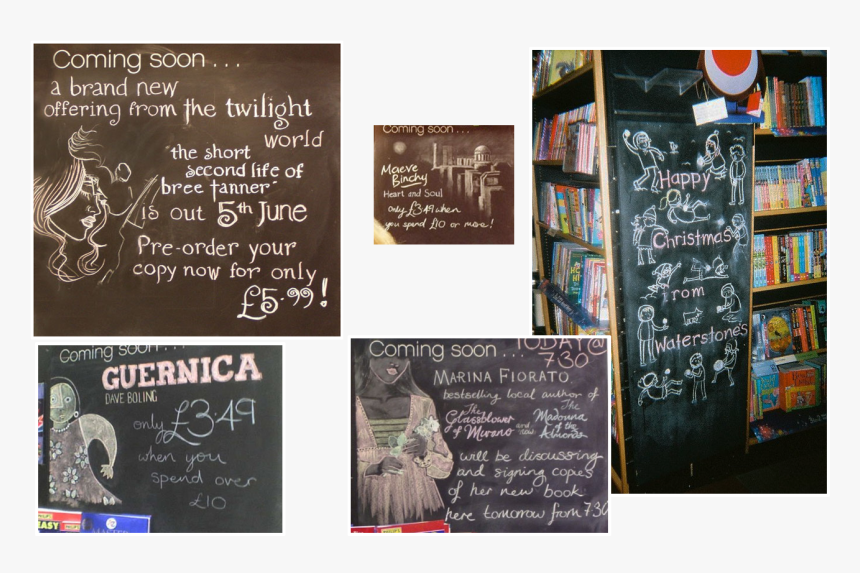 Coming soon...
a brand new
offering from the twilight
world
the short
second life of
bree tanner"
is out 5th June
Pre-order your
copy now for only
£5.99!
Coming soon...
Maeve
Binchy
Heart and Soul
only £3.49 when
you spend £10 or more!
Happy
Christmas
from
Waterstone's
Coming soon...
GUERNICA
DAVE BOLING
only £3.49
when you
spend over
£10
EASY
Coming soon... TODAY @
7.30
MARINA FIORATO
bestselling local author of
The Glassblower of Murano and now The Madonna of the Almonds
will be discussing
and signing copies
of her new book
here tomorrow from 7.30